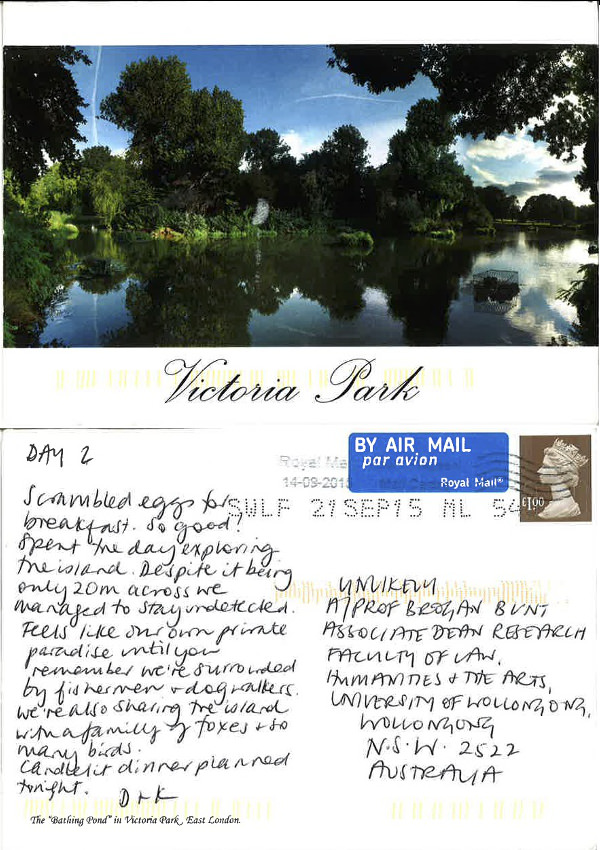 Victoria Park
DAY 2
Scrambled eggs for
breakfast. So good!
Spent the day exploring
the island. Despite it being
only 20m across we
managed to stay undetected.
Feels like our own private
paradise until you
remember we're surrounded
by fishermen + dogwalkers.
We're also sharing the island
with a family of foxes + so
many birds.
Candlelit dinner planned
tonight.
D+K
The "Bathing Pond" in Victoria Park, East London.
BY AIR MAIL
par avion
Royal Mail®
£1.00
Royal
14-09-2015
SWLF 21SEP15 ML 54
UNLIKELY
A/PROF BROGAN BUNT
ASSOCIATE DEAN RESEARCH
FACULTY OF LAW,
HUMANITIES + THE ARTS,
UNIVERSITY OF WOLLONGONG,
WOLLONGONG
N.S.W. 2522
AUSTRALIA